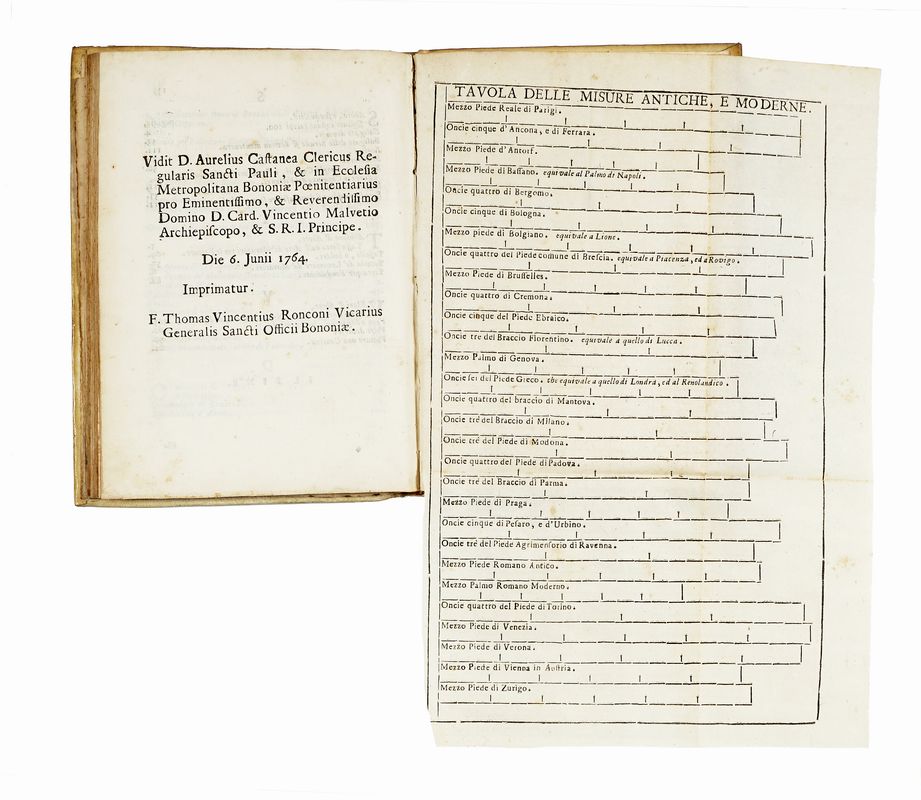 Vidit D. Aurelius Caſtanea Clericus Re-
gularis Sancti Pauli, & in Eccleſia
Metropolitana Bononiæ Pœnitentiarius
pro Eminentiſſimo, & Reverendiſſimo
Domino D. Card. Vincentio Malvetio
Archiepiſcopo, & S. R. I. Principe.
Die 6. Junii 1764.
Imprimatur.
F. Thomas Vincentius Ronconi Vicarius
Generalis Sancti Officii Bononiæ.
TAVOLA DELLE MISURE ANTICHE, E MODERNE.
Mezzo Piede Reale di Parigi.
Oncie cinque d'Ancona, e di Ferrara.
Mezzo Piede d'Antorf.
Mezzo Piede di Baſſano. equivale al Palmo di Napoli.
Oncie quattro di Bergomo.
Oncie cinque di Bologna.
Mezzo piede di Bolgiano. equivale a Lione.
Oncie quattro del Piede comune di Breſcia. equivale a Piacenza, ed a Rovigo.
Mezzo Piede di Bruſſelles.
Oncie quattro di Cremona.
Oncie cinque del Piede Ebraico.
Oncie tre del Braccio Fiorentino. equivale a quello di Lucca.
Mezzo Palmo di Genova.
Oncie ſei del Piede Greco. che equivale a quello di Londra, ed al Renolandico.
Oncie quattro del braccio di Mantova.
Oncie tré del Braccio di Milano.
Oncie tré del Piede di Modona.
Oncie quattro del Piede di Padova.
Oncie tré del Braccio di Parma.
Mezzo Piede di Praga.
Oncie cinque di Peſaro, e d'Urbino.
Oncie tré del Piede Agrimenſorio di Ravenna.
Mezzo Piede Romano Antico.
Mezzo Palmo Romano Moderno.
Oncie quattro del Piede di Torino.
Mezzo Piede di Venezia.
Mezzo Piede di Verona.
Mezzo Piede di Vienna in Auſtria.
Mezzo Piede di Zurigo.